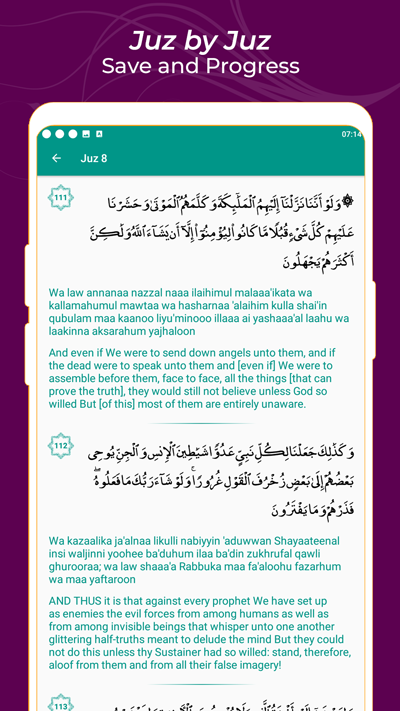 Juz by Juz
Save and Progress
07:14
Juz 8
111
۞ وَلَوْ أَنَّنَا نَزَّلْنَآ إِلَيْهِمُ ٱلْمَلَٰٓئِكَةَ وَكَلَّمَهُمُ ٱلْمَوْتَىٰ وَحَشَرْنَا
عَلَيْهِمْ كُلَّ شَىْءٍ قُبُلًا مَّا كَانُوا۟ لِيُؤْمِنُوٓا۟ إِلَّآ أَن يَشَآءَ ٱللَّهُ وَلَٰكِنَّ
أَكْثَرَهُمْ يَجْهَلُونَ
Wa law annanaa nazzal naaa ilaihimul malaaa'ikata wa
kallamahumul mawtaa wa hasharnaa 'alaihim kulla shai'in
qubulam maa kaanoo liyu'minooo illaaa ai yashaaa'al laahu wa
laakinna aksarahum yajhaloon
And even if We were to send down angels unto them, and if
the dead were to speak unto them and [even if] We were to
assemble before them, face to face, all the things [that can
prove the truth], they would still not believe unless God so
willed But [of this] most of them are entirely unaware.
112
وَكَذَٰلِكَ جَعَلْنَا لِكُلِّ نَبِىٍّ عَدُوًّا شَيَٰطِينَ ٱلْإِنسِ وَٱلْجِنِّ يُوحِى
بَعْضُهُمْ إِلَىٰ بَعْضٍ زُخْرُفَ ٱلْقَوْلِ غُرُورًا ۚ وَلَوْ شَآءَ رَبُّكَ مَا فَعَلُوهُ ۖ
فَذَرْهُمْ وَمَا يَفْتَرُونَ
Wa kazaalika ja'alnaa likulli nabiyyin 'aduwwan Shayaateenal
insi waljinni yoohee ba'duhum ilaa ba'din zukhrufal qawli
ghurooraa; wa law shaaa'a Rabbuka maa fa'aloohu fazarhum
wa maa yaftaroon
AND THUS it is that against every prophet We have set up
as enemies the evil forces from among humans as well as
from among invisible beings that whisper unto one another
glittering half-truths meant to delude the mind But they could
not do this unless thy Sustainer had so willed: stand, therefore,
aloof from them and from all their false imagery!
113